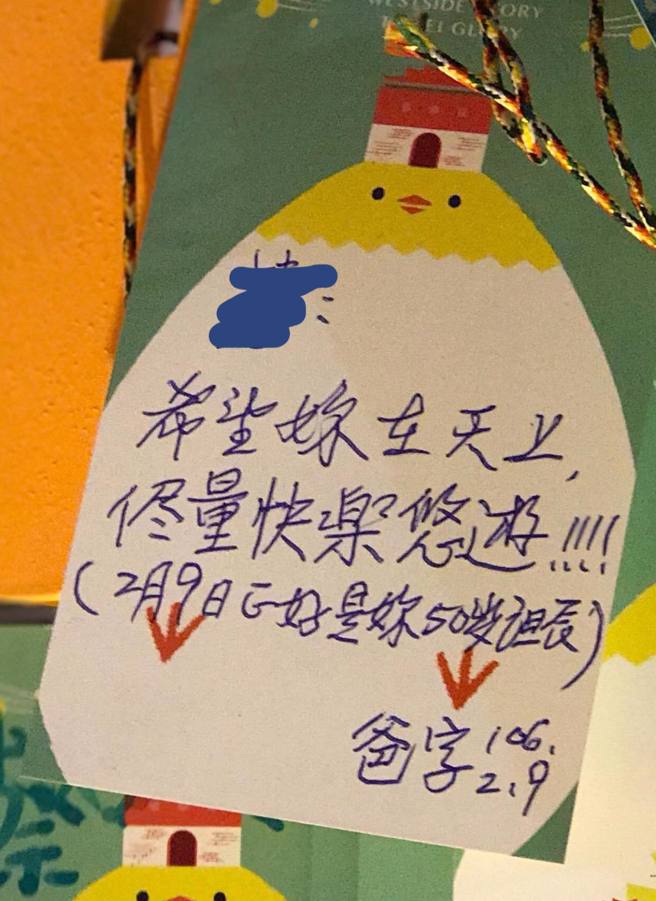 WESTSIDE GLORY
TAIPEI GLORY
希望妳在天上,
侭量快樂悠遊!!!!
(2月9日正好是妳50歲誕辰)
爸字 106.
2.9